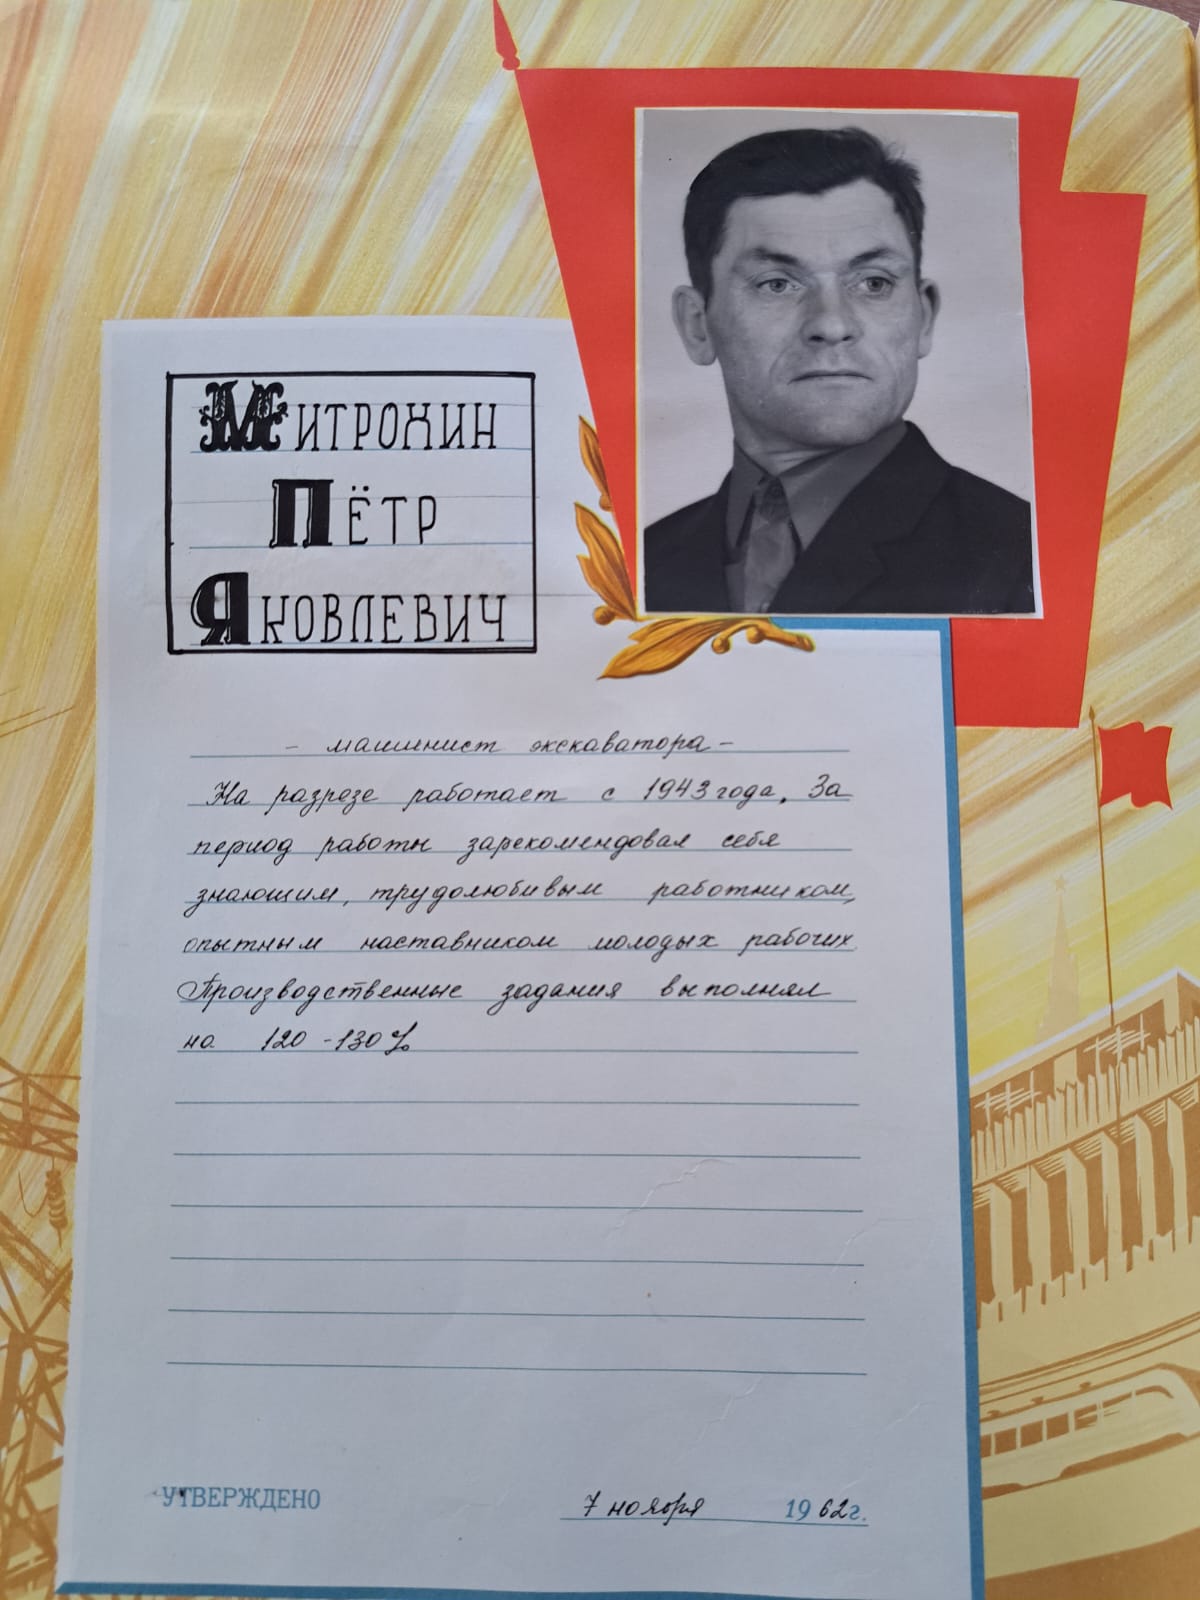 Митрохин
Пётр
Яковлевич
- машинист экскаватора -
На разрезе работает с 1943 года. За
период работы зарекомендовал себя
знающим, трудолюбивым работником,
опытным наставником молодых рабочих
Производственные задания выполнял
на 120-130%
УТВЕРЖДЕНО 7 ноября 1962г.